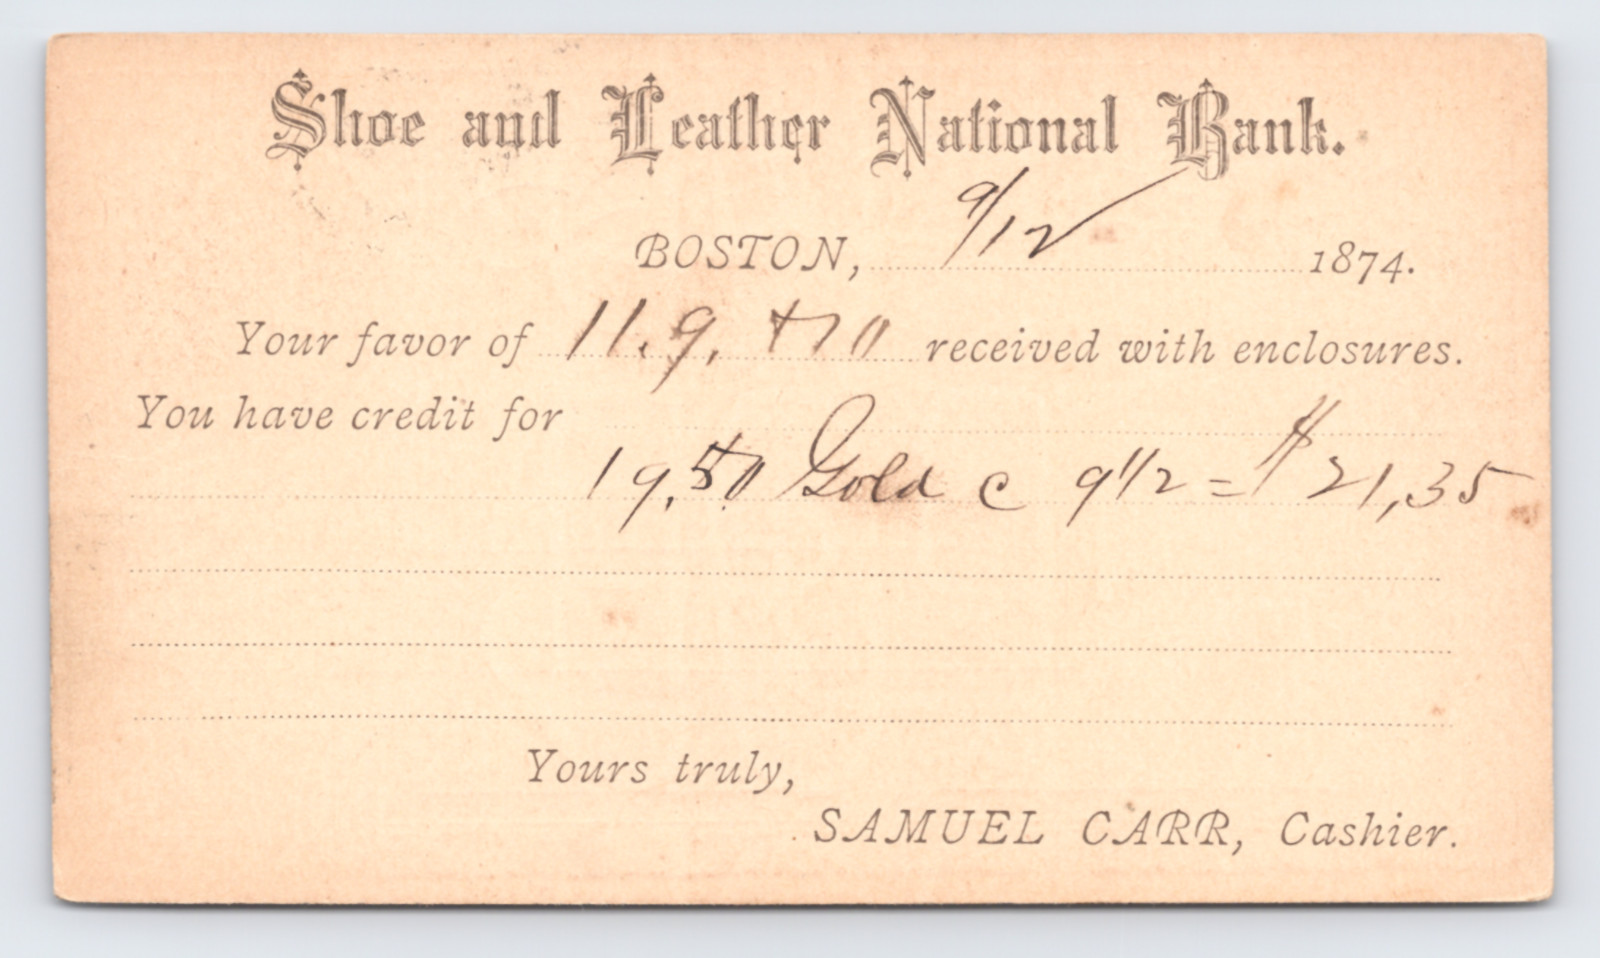 Shoe and Leather National Bank.
BOSTON, 9/12 1874.
Your favor of 11.9. received with enclosures.
You have credit for
19,50 Gold c 9 1/2 = $21,35
Yours truly,
SAMUEL CARR, Cashier.